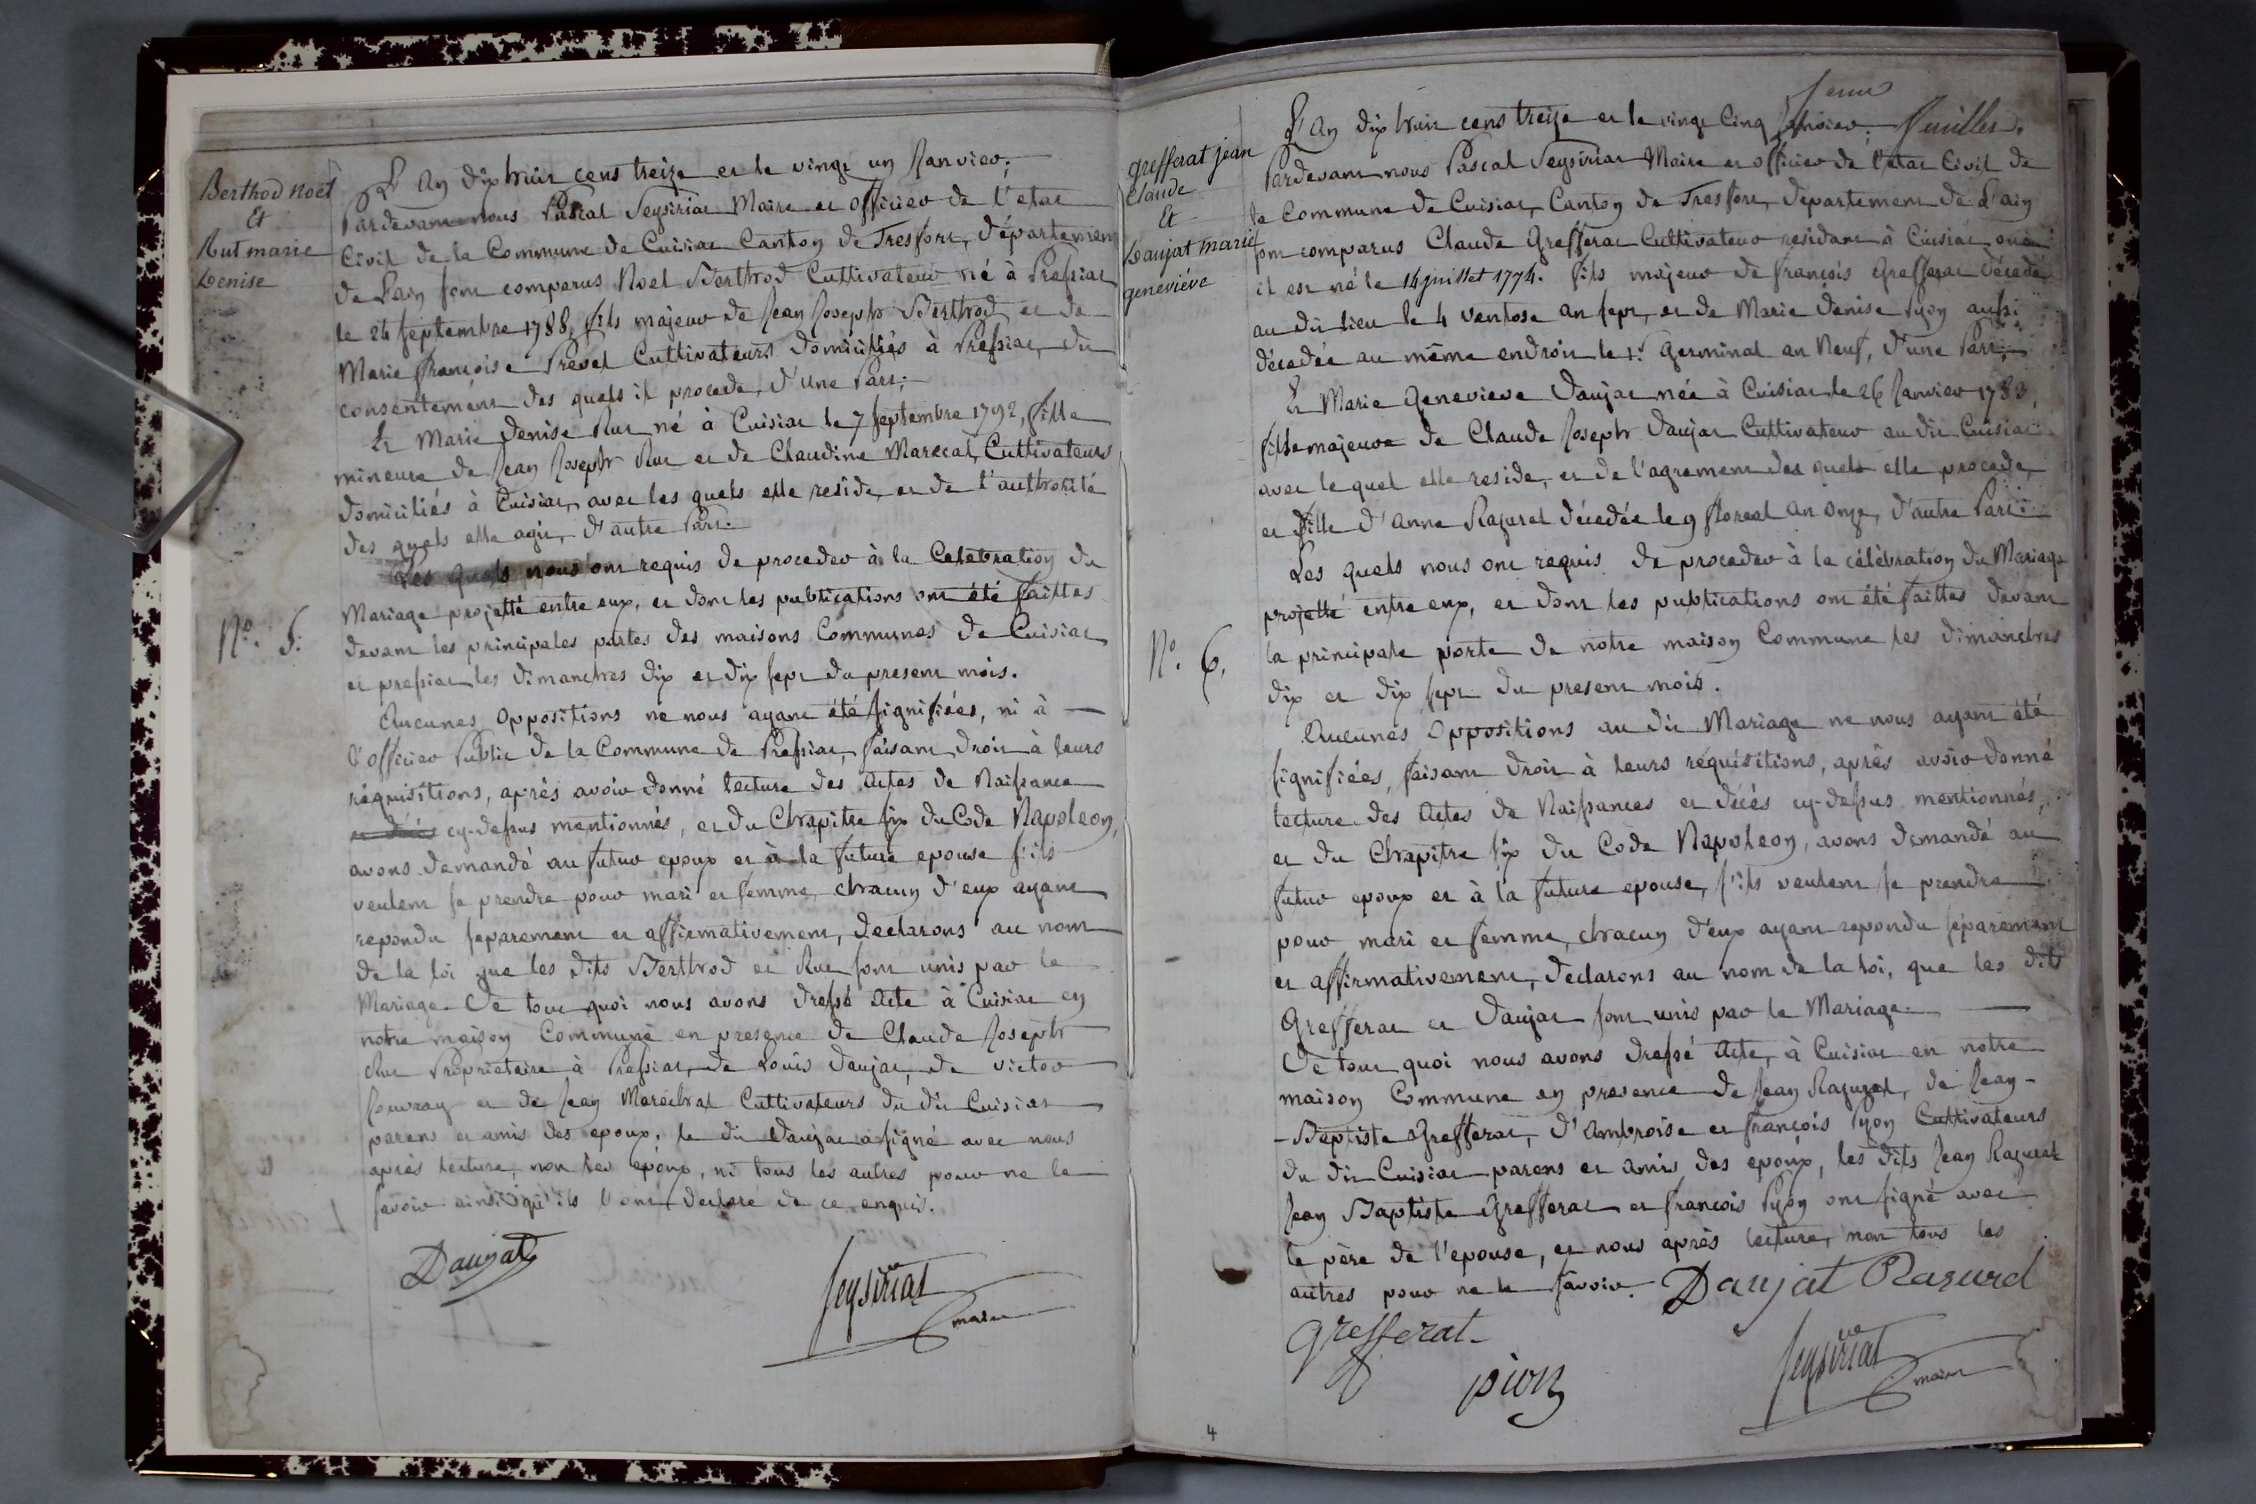 Berthod noël
et
Rut marie
Denise
L'An dix huit cent treize et le vingt un Janvier,
Pardevant nous Pascal Seysiriat Maire et officier de l'etat
Civil de la Commune de Cuisiat Canton de Tresfort, département
de L'ain sont comparus Noel Berthod Cultivateur né à Pressiat
le 24 septembre 1788, fils majeur de Jean Joseph Berthod et de
Marie françoise Prevel Cultivateurs domiciliés à Pressiat, du
consentement des quels il procede, d'une Part;
Et Marie Denise Rut né à Cuisiat le 7 septembre 1792, fille
mineure de Jean Joseph Rut et de Claudine Marecal, Cultivateurs
domiciliés à Cuisiat, avec les quels elle reside, et de l'authorité
des quels elle agit, d'autre Part.
Les quels nous ont requis de proceder à la Celebration du
Nº. 5.
Mariage projetté entre eux, et dont les publications ont été faittes
devant les principales portes des maisons Communes de Cuisiat
et pressiat les dimanches dix et dix sept du present mois.
Aucunes Oppositions ne nous ayant été signifiées, ni à
l'officier Public de la Commune de Pressiat, faisant droit à leurs
réquisitions, après avoir donné lecture des Actes de Naissance
et décés cy-dessus mentionnés, et du Chapitre six du Code Napoleon,
avons demandé au futur epoux et à la future epouse s'ils
veulent se prendre pour mari et femme, chacun d'eux ayant
repondu separement et affirmativement, declarons au nom
de la loi que les dits Berthod et Rut sont unis par le
Mariage. De tout quoi nous avons dressé Acte à Cuisiat en
notre maison Commune en presence de Claude Joseph
Rut Proprietaire à Pressiat, de Louis Daujat, de victor
Jouvray et de Jean Maréchal Cultivateurs du dit Cuisiat
parens et amis des epoux, le dit Daujat a signé avec nous
après lecture, non les epoux, ni tous les autres pour ne le
savoir ainsi qu'ils l'ont declaré de ce enquis.
Daujat
Seysiriat
maire
grefferat jean
Claude
Et
Daujat marie
geneviéve
4eme
feuillet.
L'An dix huit cent treize et le vingt Cinq Janvier.
Pardevant nous Pascal Seysiriat Maire et officier de l'etat Civil de
la Commune de Cuisiat, Canton de Tresfort, département de L'ain
sont comparus Claude Grefferat Cultivateur residant à Cuisiat où
il est né le 14 juillet 1774. fils majeur de françois Grefferat décedé
au dit lieu le 4 ventose an sept, et de Marie denise Pyon aussi
décedée au même endroit le 1r. Germinal an Neuf, d'une Part,
Et Marie Genevieve Daujat née à Cuisiat le 26 Janvier 1783,
fille majeure de Claude Joseph Daujat Cultivateur au dit Cuisiat
avec le quel elle reside, et de l'agrement des quels elle procede,
et fille d'Anne Razurel décedée le 9 floreal an Onze, d'autre Part:
Les quels nous ont requis de proceder à la célèbration du Mariage
projetté entre eux, et dont les publications ont été faittes devant
la principale porte de notre maison Commune les dimanches
Nº. 6.
dix et dix sept du present mois.
Aucunes Oppositions au dit Mariage ne nous ayant été
signifiées, faisant droit à leurs réquisitions, après avoir donné
lecture des Actes de Naissances et décés cy-dessus mentionnés,
et du Chapitre six du Code Napoleon, avons demandé au
futur epoux et à la future epouse, s'ils veulent se prendre
pour mari et femme, chacun d'eux ayant repondu séparement
et affirmativement, declarons au nom de la loi, que les dits
Grefferat et Daujat sont unis par le Mariage.
De tout quoi nous avons dressé Acte, à Cuisiat en notre
maison Commune en presence de Jean Razurel, de Jean-
-Baptiste Grefferat, d'Ambroise et françois Pyon Cultivateurs
du dit Cuisiat parens et amis des epoux, les dits Jean Razurel
Jean Baptiste Grefferat et francois Pyon ont signé avec
le père de l'epouse, et nous après lecture, non tous les
autres pour ne le savoir.
Daujat Rasurel
grefferat
pion
Seysiriat
maire
4